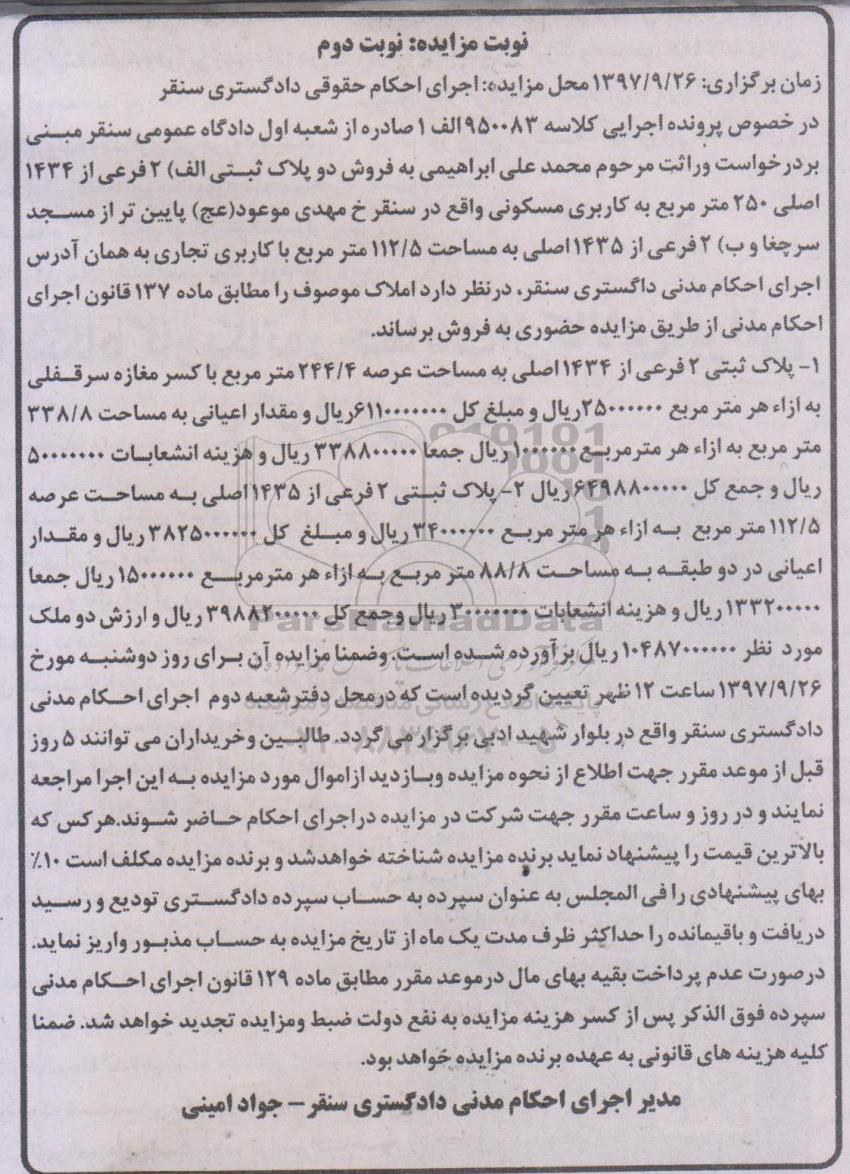 نوبت مزایده: نوبت دوم
زمان برگزاری: ۱۳۹۷/۹/۲۶ محل مزایده: اجرای احکام حقوقی دادگستری سنقر
در خصوص پرونده اجرایی کلاسه ۹۵۰۰۸۳ الف ۱ صادره از شعبه اول دادگاه عمومی سنقر مبنی
بردرخواست وراثت مرحوم محمد علی ابراهیمی به فروش دو پلاک ثبتی الف) ۲ فرعی از ۱۴۳۴
اصلی ۲۵۰ متر مربع به کاربری مسکونی واقع در سنقر خ مهدی موعود(عج) پایین تر از مسجد
سرچغا و ب) ۲ فرعی از ۱۴۳۵ اصلی به مساحت ۱۱۲/۵ متر مربع با کاربری تجاری به همان آدرس
اجرای احکام مدنی داگستری سنقر، درنظر دارد املاک موصوف را مطابق ماده ۱۳۷ قانون اجرای
احکام مدنی از طریق مزایده حضوری به فروش برساند.
۱- پلاک ثبتی ۲ فرعی از ۱۴۳۴ اصلی به مساحت عرصه ۲۴۴/۴ متر مربع با کسر مغازه سرقفلی
به ازاء هر متر مربع ۲۵۰۰۰۰۰۰ ریال و مبلغ کل ۶۱۱۰۰۰۰۰۰۰ ریال و مقدار اعیانی به مساحت ۳۳۸/۸
متر مربع به ازاء هر مترمربع ۱۰۰۰۰۰۰ ریال جمعا ۳۳۸۸۰۰۰۰۰ ریال و هزینه انشعابات ۵۰۰۰۰۰۰۰
ریال و جمع کل ۶۴۹۸۸۰۰۰۰۰ ریال ۲- پلاک ثبتی ۲ فرعی از ۱۴۳۵ اصلی به مساحت عرصه
۱۱۲/۵ متر مربع به ازاء هر متر مربع ۳۴۰۰۰۰۰۰ ریال و مبلغ کل ۳۸۲۵۰۰۰۰۰۰ ریال و مقدار
اعیانی در دو طبقه به مساحت ۸۸/۸ متر مربع به ازاء هر مترمربع ۱۵۰۰۰۰۰ ریال جمعا
۱۳۳۲۰۰۰۰۰ ریال و هزینه انشعابات ۳۰۰۰۰۰۰۰ ریال وجمع کل ۳۹۸۸۲۰۰۰۰۰ ریال و ارزش دو ملک
مورد نظر ۱۰۴۸۷۰۰۰۰۰۰ ریال برآورده شده است. وضمنا مزایده آن برای روز دوشنبه مورخ
۱۳۹۷/۹/۲۶ ساعت ۱۲ ظهر تعیین گردیده است که درمحل دفترشعبه دوم اجرای احکام مدنی
دادگستری سنقر واقع در بلوار شهید ادبی برگزار می گردد. طالبین وخریداران می توانند ۵ روز
قبل از موعد مقرر جهت اطلاع از نحوه مزایده وبازدید ازاموال مورد مزایده به این اجرا مراجعه
نمایند و در روز و ساعت مقرر جهت شرکت در مزایده دراجرای احکام حاضر شوند.هرکس که
بالاترین قیمت را پیشنهاد نماید برنده مزایده شناخته خواهدشد و برنده مزایده مکلف است ۱۰٪
بهای پیشنهادی را فی المجلس به عنوان سپرده به حساب سپرده دادگستری تودیع و رسید
دریافت و باقیمانده را حداکثر ظرف مدت یک ماه از تاریخ مزایده به حساب مذبور واریز نماید.
درصورت عدم پرداخت بقیه بهای مال درموعد مقرر مطابق ماده ۱۲۹ قانون اجرای احکام مدنی
سپرده فوق الذکر پس از کسر هزینه مزایده به نفع دولت ضبط ومزایده تجدید خواهد شد. ضمنا
کلیه هزینه های قانونی به عهده برنده مزایده خواهد بود.
مدیر اجرای احکام مدنی دادگستری سنقر – جواد امینی
ParsNamadData